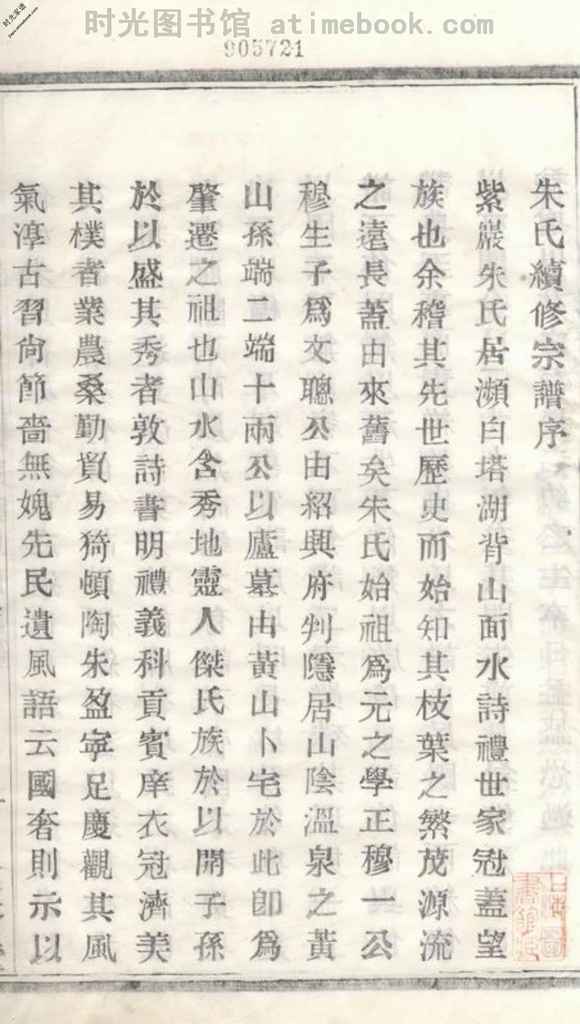 时光图书馆 atimebook.com
905721
朱氏續修宗譜序
紫巖朱氏居瀕白塔湖背山面水詩禮世家冠蓋望
族也余稽其先世歷史而始知其枝葉之緐茂源流
之遠長蓋由來舊矣朱氏始祖爲元之學正穆一公
穆生子爲文聰公由紹興府判隱居山陰溫泉之黃
山孫端二端十兩公以廬墓由黃山卜宅於此卽爲
肇遷之祖也山水含秀地靈人傑氏族於以開子孫
於以盛其秀者敦詩書明禮義科貢賓庠衣冠濟美
其樸者業農桑勤貿易猗頓陶朱盈寧足慶觀其風
氣淳古習尙節嗇無媿先民遺風語云國奢則示以